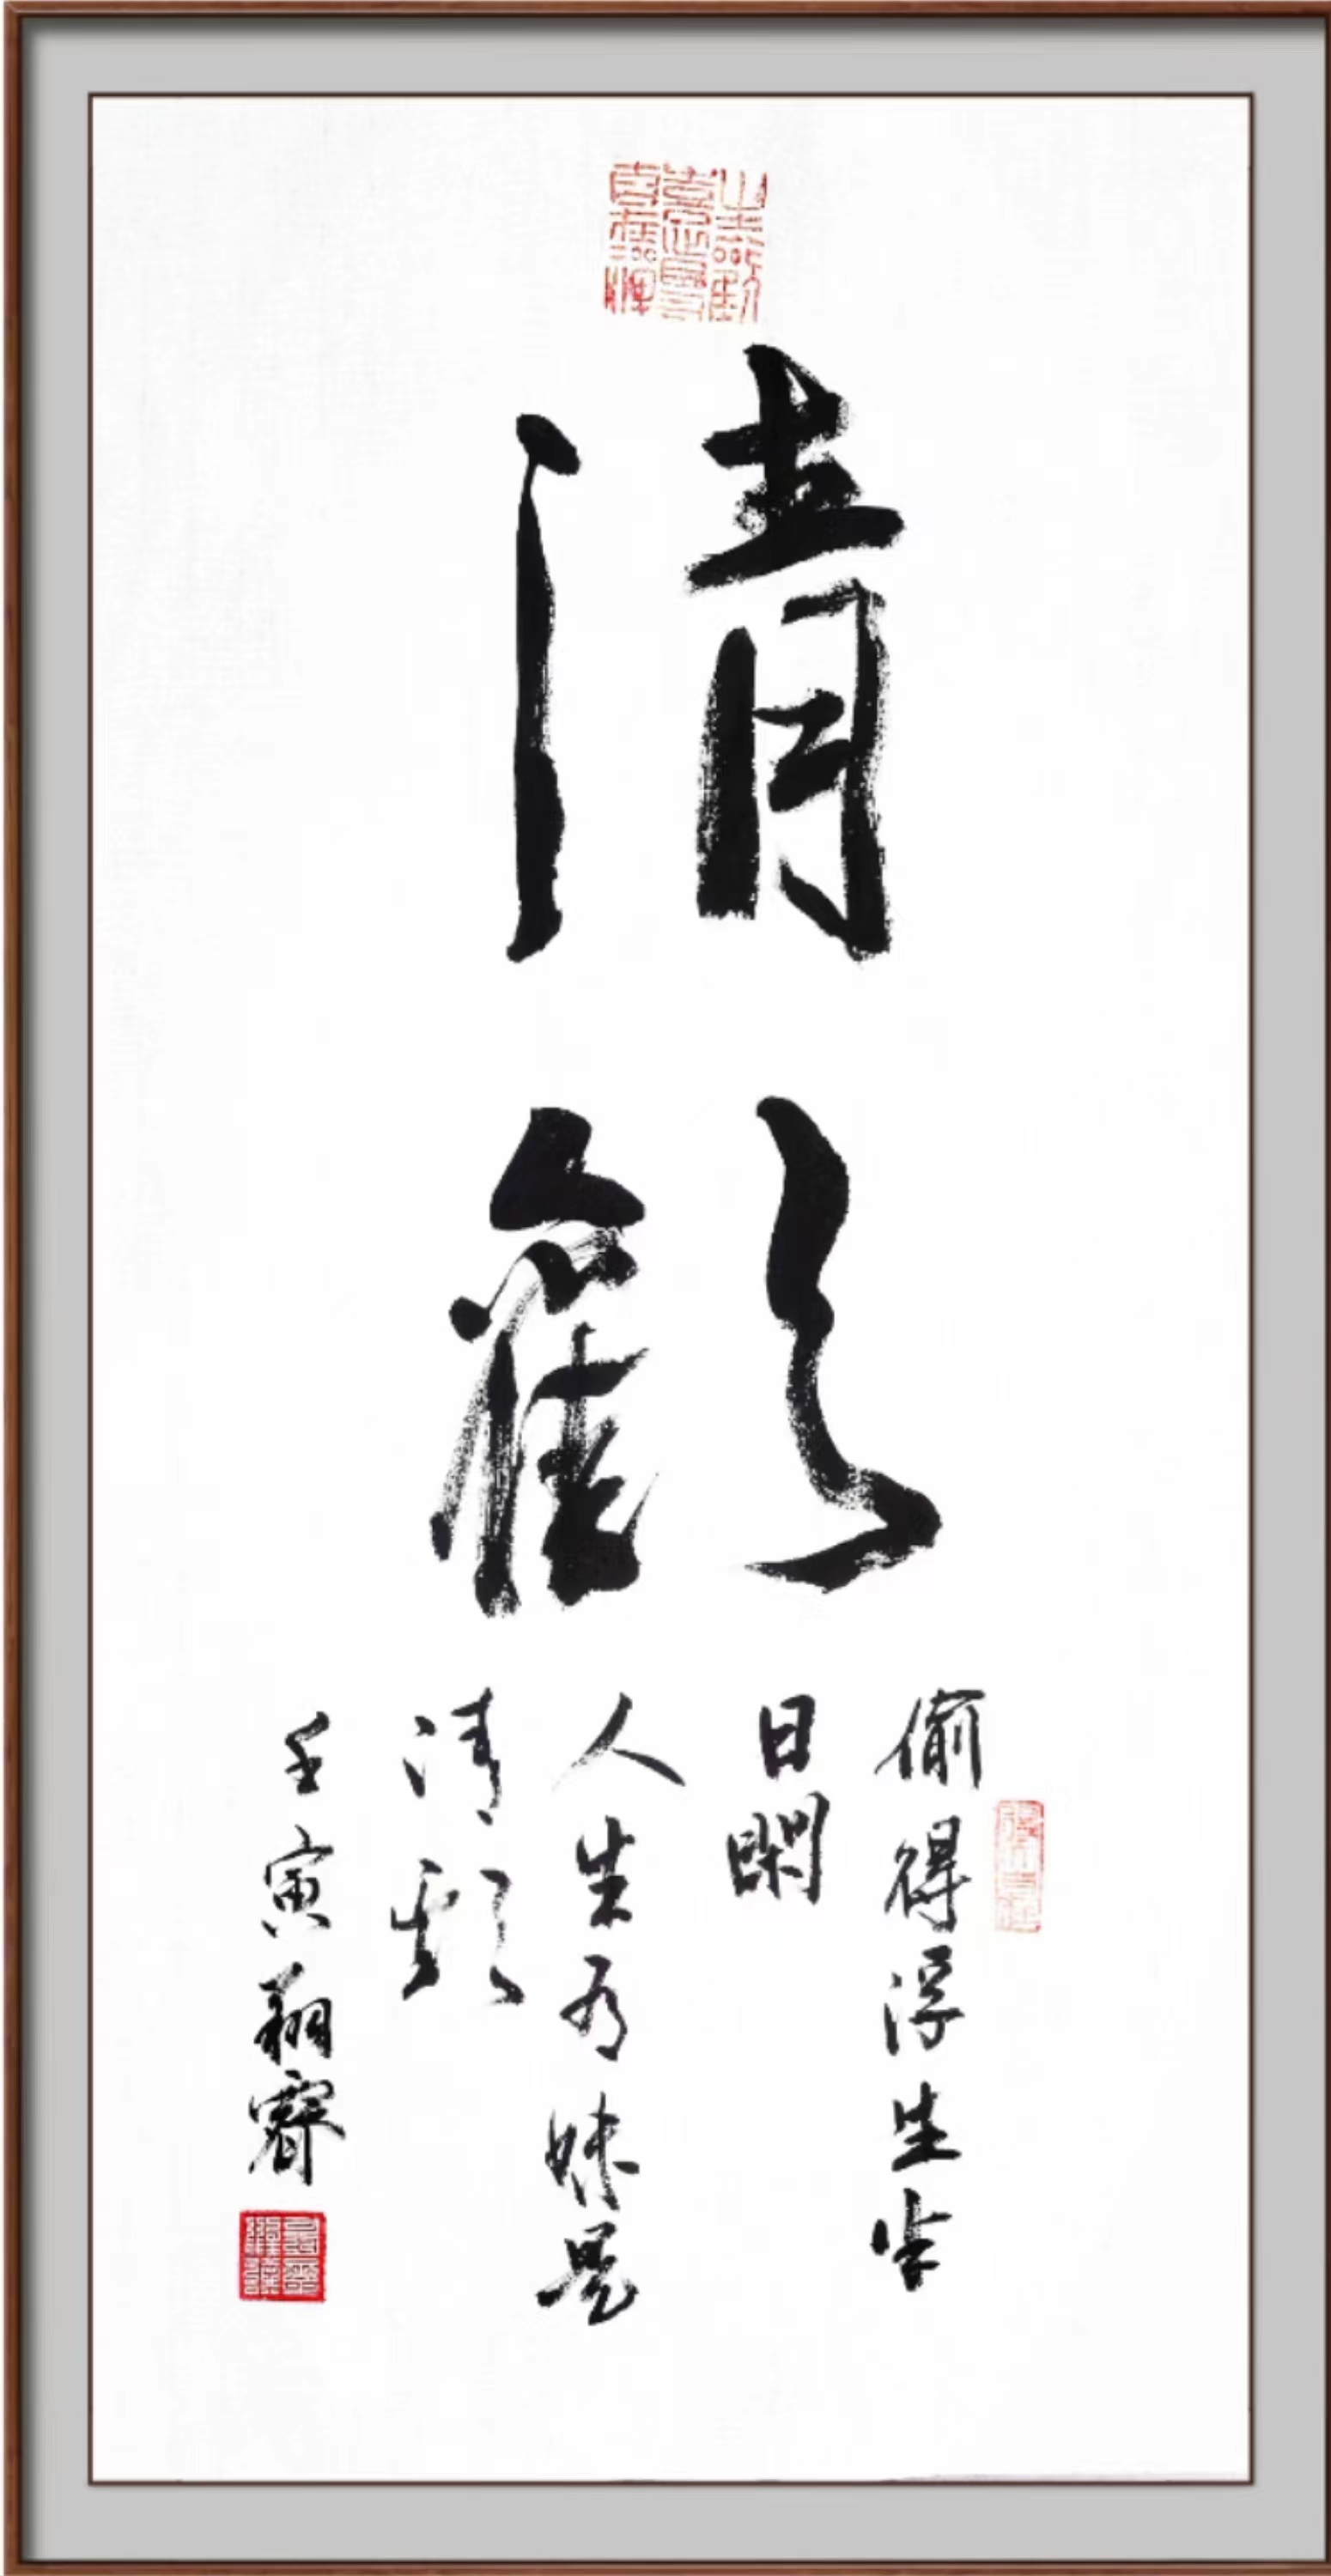 清歡
偷得浮生半
日閑
人生有味是
清歡
壬寅翔霽